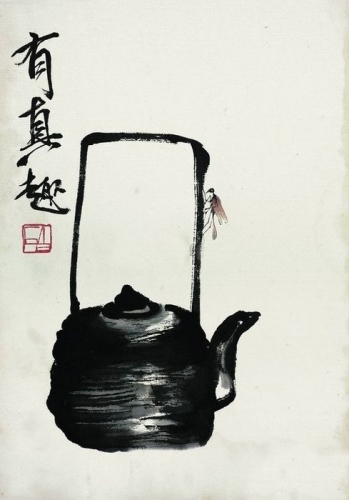 有真趣